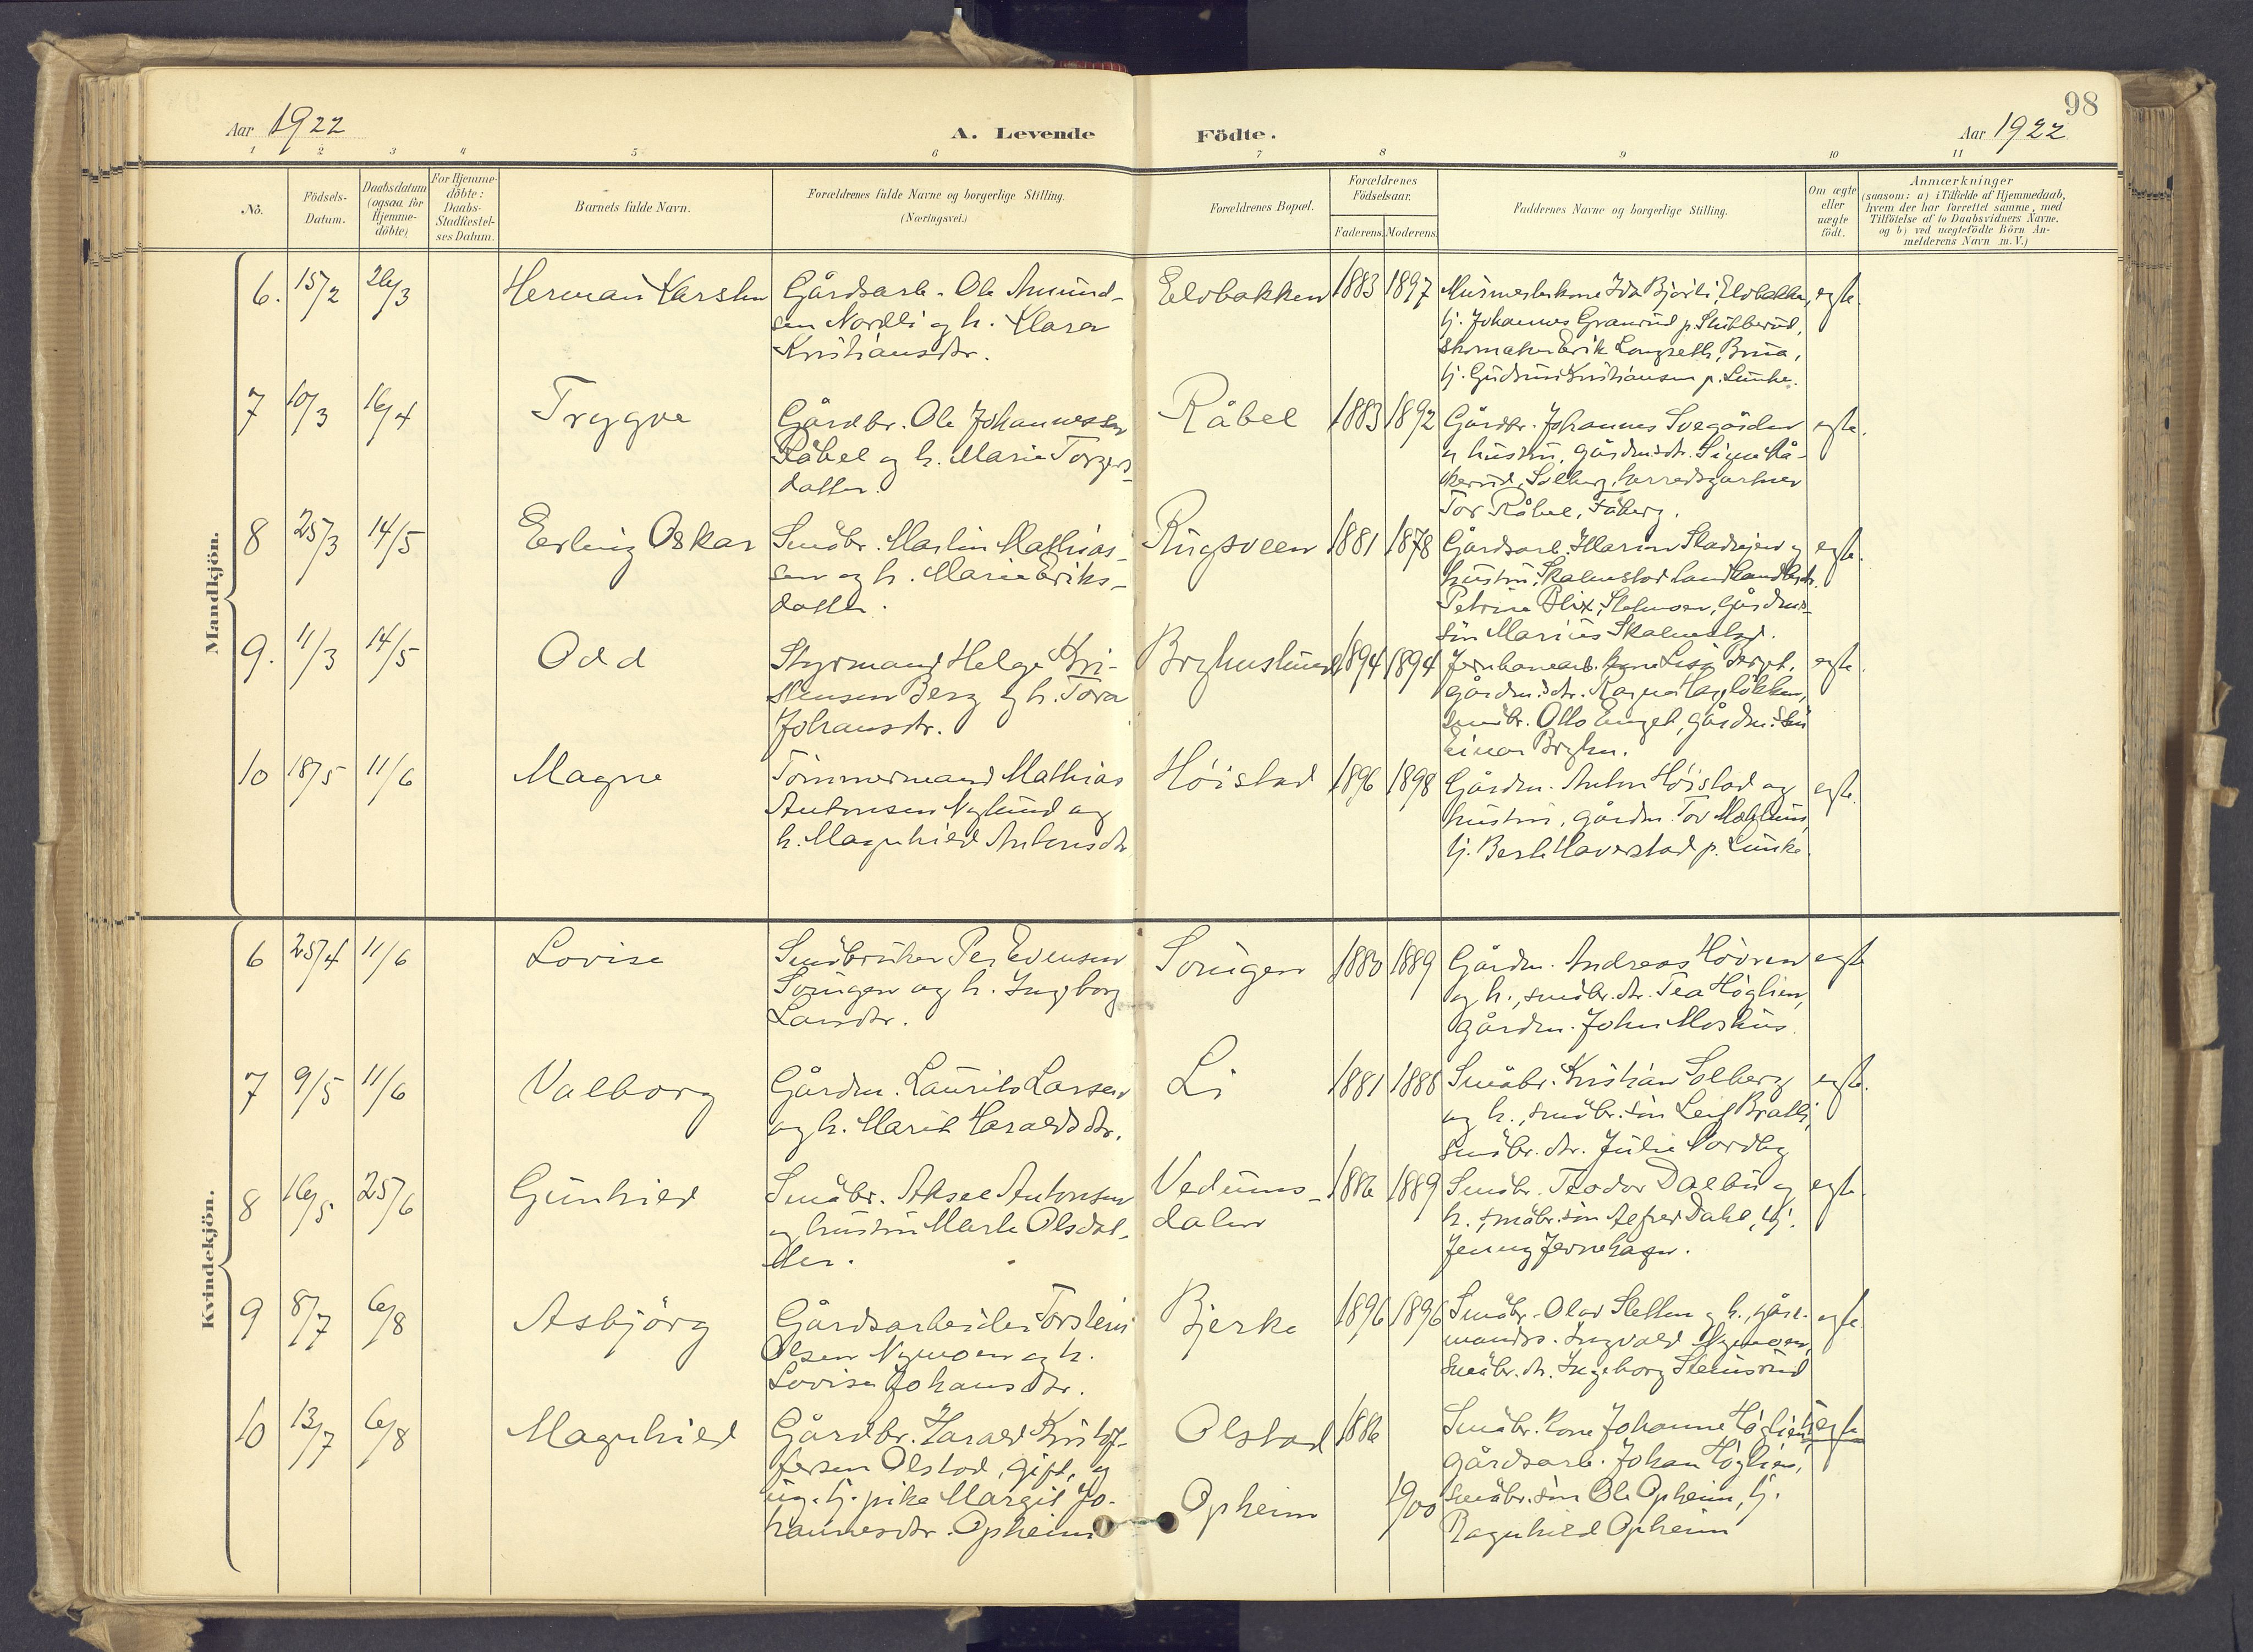 98
Aar 1922
A. Levende Födte.
Aar 1922
1 2 3 4 5 6 7 8 9 10 11
Nö.
Födsels-
Datum.
Daabsdatum
(ogsaa for
Hjemme-
döbte)
For Hjemme-
döbte:
Daabs-
Stadfæstel-
ses Datum.
Barnets fulde Navn.
Forældrenes fulde Navne og borgerlige Stilling.
(Næringsvei.)
Forældrenes Bopæl.
Forældrenes
Födselsaar.
Faderens. Moderens.
Faddernes Navne og borgerlige Stilling.
Om ægte
eller
uægte
födt.
Anmærkninger
(saasom: a) i Tilfælde af Hjemmedaab,
hvem der har forrettet samme, med
Tilföielse af to Daabsvidners Navne.
og b) ved uægtefödte Börn An-
melderens Navn m. V.)
Mandkjön.
6. 15/2 26/3 Herman Karsten
Gårdsarb. Ole Amund-
sen Nordli og h. Klara
Kristiansdtr.
Elvbakken 1883 1897
Murmesterkone Ida Bjørli, Elvbakken,
tj. Johannes Granrud p. Slubberud,
skomaker Erik Longseth, Brua,
tj. Gudrun Kristiansen p. Lunke.
egte.
7 10/3 16/4 Trygve
Gårdbr. Ole Johannessen
Råbel og h. Marie Torgers-
datter.
Råbel 1883 1892
Gårdbr. Johannes Svegården
og hustru, gårdm.dtr. Signe Rå-
kerud, Solberg, herredsgartner
Tor Råbel, Fåberg.
egte.
8 25/3 14/5 Erling Oskar
Småbr. Martin Mathias-
sen og h. Marie Eriks-
datter.
Rugsveen 1881 1878
Gårdsarb. og
hustru, Skalmstad
Petrine Blix, gårdm.-
søn Marius Skalmstad.
egte.
9. 11/3 14/5 Odd
Styrmand Helge Kri-
stensen Berg og h. Tora
Johansdtr.
Bryhnslund 1894 1894
Jernbanearb. kone
gårdm.dtr. Ragna Hagløkken,
småbr. Otto Enget, gårdm. søn
Einar Bryhn.
egte.
10 18/5 11/6 Magne
Tømmermand Mathias
Antonsen Nylund og
h. Magnhild Antonsdtr
Høistad 1896 1898
Gårdm. Anton Høistad og
hustru, gårdm. Tor Mæhlum,
tj. Berte Haverstad p. Lunke.
egte.
Kvindekjön.
6 25/4 11/6 Lovise
Småbruker Per Evensen
Svingen og h. Ingeborg
Larsdtr.
Svingen 1880 1889
Gårdm. Andreas Høvren
og h., småbr. dtr. Tea Høglien,
gårdm. John Moshus.
egte
7 9/5 11/6 Valborg
Gårdm. Laurits Larsen
og h. Marit Haraldsdtr.
Li 1881 1888
Småbr. Kristian Solberg
og h., småbr. søn Leif Bratli,
småbr. dtr. Julie Nordby
egte.
8 16/5 25/6 Gunhild
Småbr. Aksel Antonsen
og hustru Marte Olsdat-
ter.
Vedums-
dalen
1886 1889
Småbr. Teodor Dalbu og
h., småbr. søn Alfred Dahl, tj.
Jenny Jernehagen.
egte.
9 8/7 6/8 Asbjörg
Gårdsarbeider Torstein
Olsen Nymoen og h.
Lovise Johansdtr.
Bjerke 1896 1896
Småbr. Olav Sletten og h., gård-
mands. Ingvald Nymoen,
småbr. dtr. Ingeborg Stensrud
egte.
10 13/7 6/8 Magnhild
Gårdbr. Harald Kristof-
fersen Olstad, gift, og
ug. tj. pike Margit Jo-
hannesdtr. Opheim
Olstad 1886
Opheim 1900
Småbr. kone Johanne Høglien,
gårdsarb. Johan Høglien,
småbr. søn Ole Opheim, tj.
Ragnhild Opheim
uegte